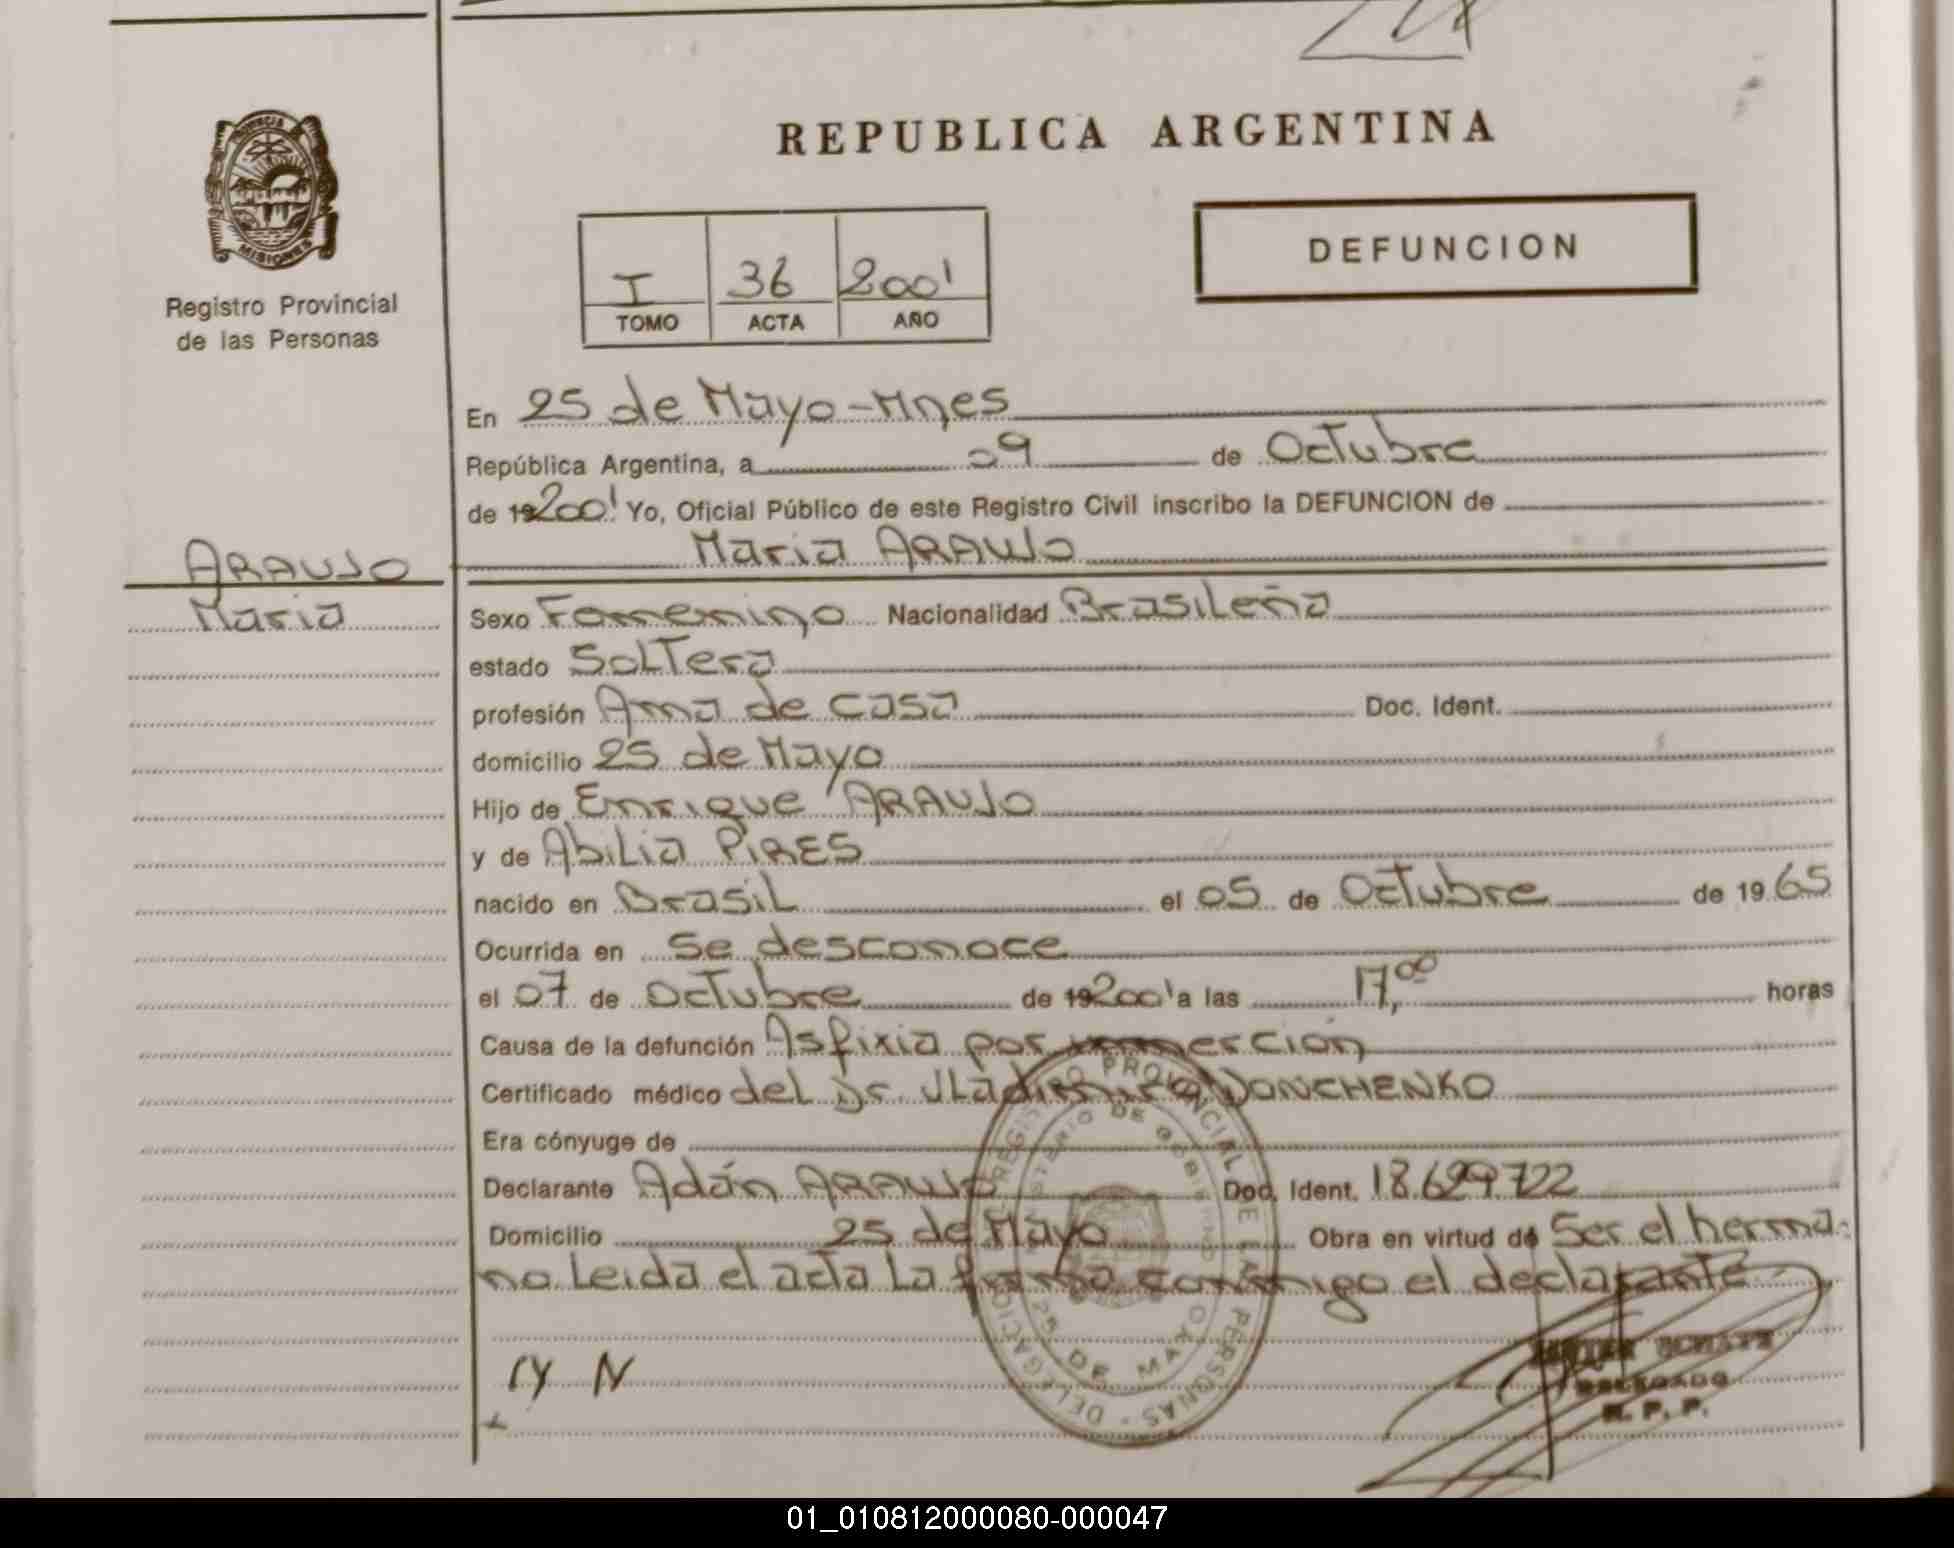 REPUBLICA ARGENTINA
PROVINCIA
MISIONES
Registro Provincial
de las Personas
I 36 2001
TOMO ACTA AÑO
DEFUNCION
En 25 de Mayo-Mnes
República Argentina, a 09 de Octubre
de 192001 Yo, Oficial Público de este Registro Civil inscribo la DEFUNCION de
Maria ARAUJO
ARAUJO
Maria
Sexo Femenino Nacionalidad Brasileña
estado Soltera
profesión Ama de casa Doc. Ident.
domicilio 25 de Mayo
Hijo de Enrique ARAUJO
y de Abilia PIRES
nacido en Brasil el 05 de Octubre de 1965
Ocurrida en Se desconoce
el 07 de Octubre de 192001 a las 17,00 horas
Causa de la defunción Asfixia por inmercion
Certificado médico del Dr. Vladimir WONCHENKO
Era cónyuge de
Declarante Adán ARAUJO Doc. Ident. 18.629.722
Domicilio 25 de Mayo Obra en virtud de Ser el herma-
no Leida el acta La firma conmigo el declarante
REGISTRO PROVINCIAL DE LAS PERSONAS - DELEGACION
MINISTERIO DE GOBIERNO
25 DE MAYO
DELEGADO
R. P. P.
01_010812000080-000047